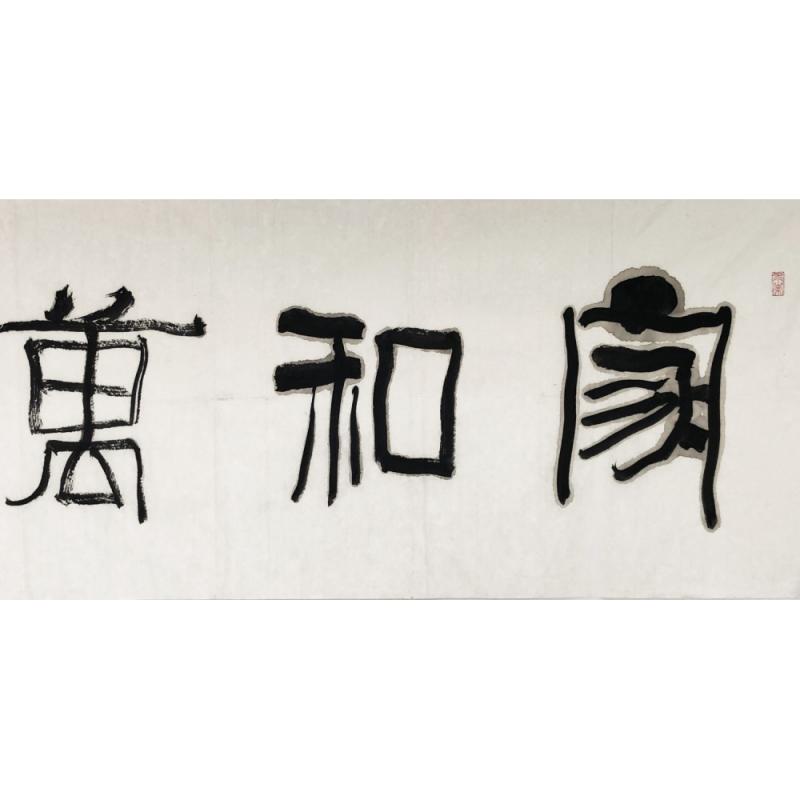 家和萬